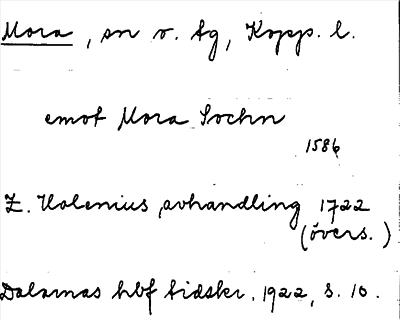 Mora, sn o. tg, Kopp. l.
emot Mora Sochn
1586
Z. Holenius avhandling 1722
(övers.)
Dalarnas hbf tidskr. 1922, s. 10.